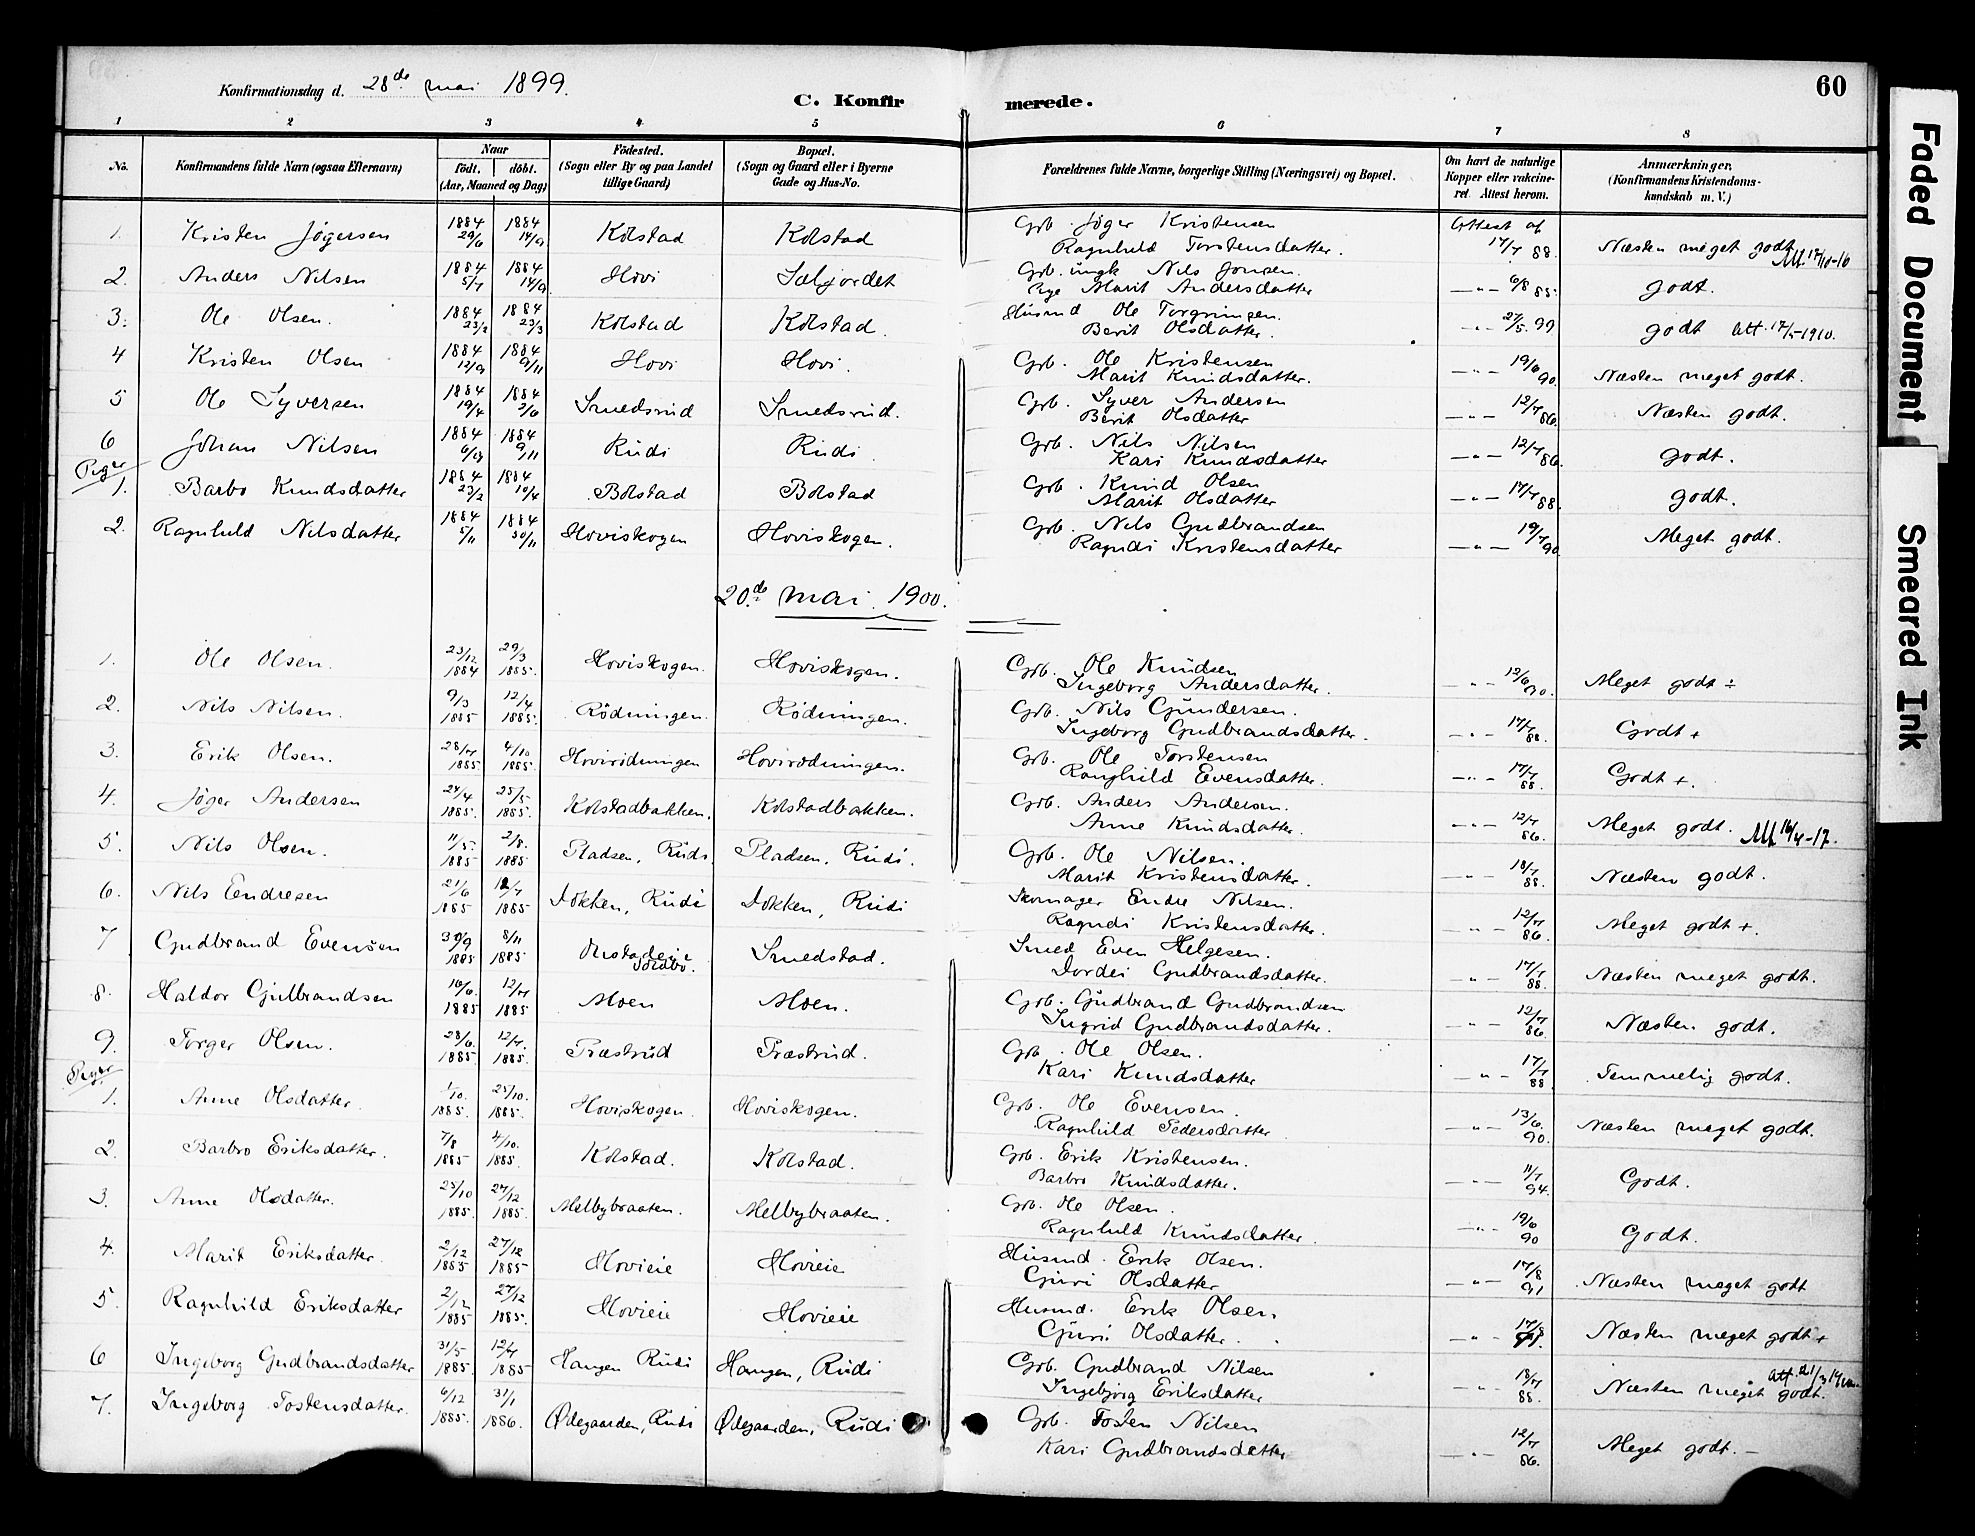 60
Konfirmationsdag d. 28de mai 1899.
C. Konfirmerede.
1 2 3 4 5 6 7 8
No. Konfirmandens fulde Navn (ogsaa Efternavn) Naar födt. döbt. (Aar, Maaned og Dag) Födested. (Sogn eller By og paa Landet tillige Gaard) Bopæl. (Sogn og Gaard eller i Byerne Gade og Hus-No. Forældrenes fulde Navne, borgerlige Stilling (Næringsvei) og Bopæl. Om havt de naturlige Kopper eller vakcineret. Attest herom. Anmærkninger, (Konfirmandens Kristendomskundskab m. V.)
1. Kristen Jögersen 1884 29/6 1884 14/9 Kolstad Kolstad Grb. Jöger Kristensen Attest af
Ragnhild Torstensdatter. 17/7 88. Næsten meget godt. 17/10-16
2. Anders Nilsen 1884 5/7 1884 14/9 Hovi Sæljordet Grb. ungk Nils Jonsen.
Pige Marit Andersdatter —"— 6/8 85. godt.
3. Ole Olsen. 1884 23/2 1884 23/3 Kolstad Kolstad. Husmd Ole Torgrimsen.
Berit Olsdatter. -"- 27/5. 99 godt Att. 17/5-1910.
4 Kristen Olsen 1884 12/9 1884 9/11 Hovi Hovi. Grb. Ole Kristensen
Marit Knudsdatter. —"— 19/6 90. Næsten meget godt.
5 Ole Syversen 1884 19/4 1884 2/6 Smedsrud Smedsrud. Grb. Syver Andersen
Berit Olsdatter —"— 12/7 86. Næsten godt.
6 Johan Nilsen 1884 1884 9/11 Rudi Rudi. Grb. Nils Nilsen
Kari Knudsdatter —"— 12/7 86. godt.
Piger
1. Barbo Knudsdatter 1884 23/2 1884 14/4 Bolstad Bolstad Grb. Knud Olsen
Marit Olsdatter —"— 17/7 88. godt.
2. Ragnhild Nilsdatter 1884 5/11 1884 30/11 Hoviskogen Hoviskogen. Grb. Nils Gudbrandsen
Ragndi Kristensdatter —"— 19/7 90 Meget godt.
20.de mai. 1900.
1. Ole Olsen. 23/12 1884 29/3 1885. Hoviskogen. Hoviskogen. Grb. Ole Knudsen
Ingeborg Andersdatter. —"— 12/6 90. Meget godt ÷
2. Nils Nilsen. 9/3 1885 12/4 1885. Rödningen. Rödningen. Grb. Nils Gundersen.
Ingeborg Gudbrandsdatter. —"— 17/7 88. Godt +
3. Erik Olsen. 28/7 1885 4/10 1885. Hovirödningen Hovirödningen. Grb. Ole Torstensen
Ranghild Evensdatter. —"— 17/7 88. Godt +.
4. Jöger Andersen 24/4 1885. 25/5. 1885. Kolstadbakken. Kolstadbakken. Grb. Anders Andersen.
Anne Knudsdatter. —"— 12/7 86. Meget godt. 16/4-17.
5. Nils Olsen. 11/5. 1885 2/8. 1885 Pladsen, Rudi. Pladsen, Rudi. Grb. Ole Nilsen.
Marit Kristensdatter. —"— 18/7 88. Næsten godt.
6. Nils Endresen 21/6 1885 12/7 1885 Dokken, Rudi Dokken, Rudi Skomager Endre Nilsen.
Ragndi Kristensdatter. —"— 12/7 86. Meget godt +.
7 Gudbrand Evensen 30/9 1885 8/11 1885 Smedstad. Smed Even Helgesen.
Dordei Gudbrandsdatter. —"— 17/7 88. Næsten meget godt.
8. Haldor Gulbrandsen 16/6. 1885 12/7 1885 Moen Moen. Grb. Gudbrand Gudbrandsen
Ingrid Gudbrandsdatter. —"— 12/7 86. Næsten godt.
9. Torger Olsen. 28/6. 1885. 12/7. 1885. Præstrud Præstrud. Grb. Ole Olsen.
Kari Knudsdatter —"— 17/7 88. Temmelig godt.
Piger
1. Anne Olsdatter. 1/10. 1885. 25/10. 1885. Hoviskogen. Hoviskogen. Grb. Ole Evensen.
Ragnhild Pedersdatter —"— 13/6. 90. Næsten meget godt.
2. Barbro Eriksdatter. 7/8 1885 4/10. 1885. Kolstad. Kolstad. Grb. Erik Kristensen.
Barbro Knudsdatter. —"— 11/7 94. Godt.
3. Anne Olsdatter. 25/10 1885. 27/12 1885. Melbybraaten. Melbybraaten. Grb. Ole Olsen.
Ragnhild Knudsdatter. —"— 19/6 90 Godt.
4. Marit Eriksdatter. 2/12 1885 27/12 1885 Hovieie Hovieie Husmd. Erik Olsen.
Guri Olsdatter —"— 17/8 91 Næsten meget godt
5. Ragnhild Eriksdatter 2/12 1885 27/12 1885. Hovieie Hovieie Husmd. Erik Olsen.
Guri Olsdatter. —"— 17/8 91. Næsten meget godt +
6 Ingeborg Gudbrandsdatter 31/5 1885. 12/7 1885 Haugen Rudi Haugen, Rudi Grb. Gudbrand Nilsen
Ingebjörg Eriksdatter —"— 18/7 88. Næsten meget godt.
7. Ingeborg Tostensdatter. 6/12 1885. 31/1 1886. Ødegaarden, Rudi Ødegaarden, Rudi Grb. Tosten Nilsen
Kari Gudbrandsdatter —"— 12/7 86. Meget godt. —
Faded Document
Smeared Ink